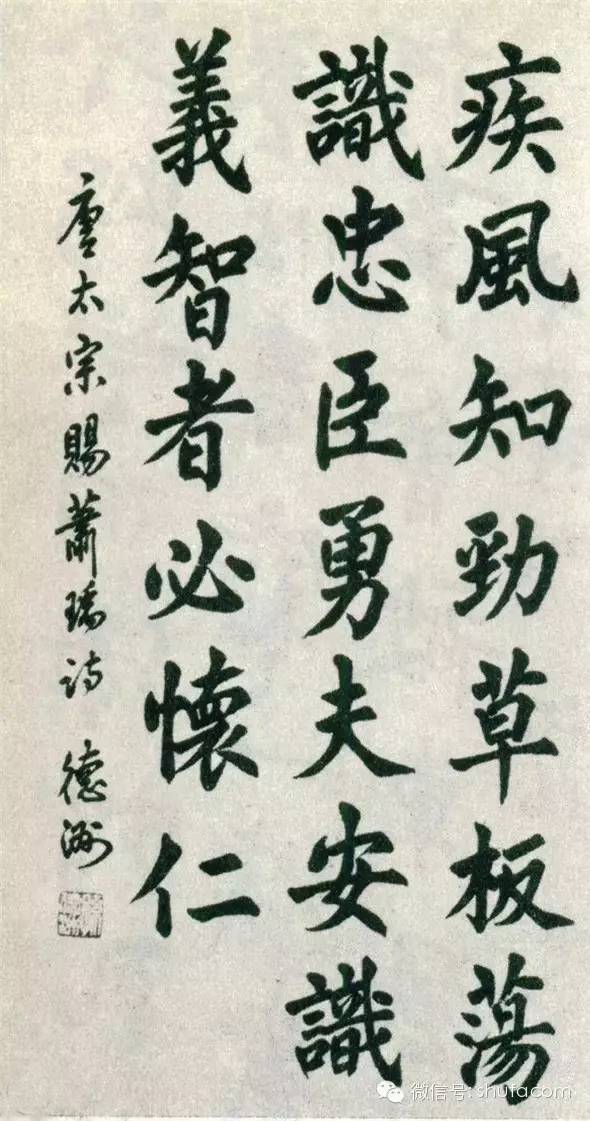 疾風知勁草板蕩
識忠臣勇夫安識
義智者必懷仁
唐太宗賜蕭瑀诗 德洲
微信号: shufacom